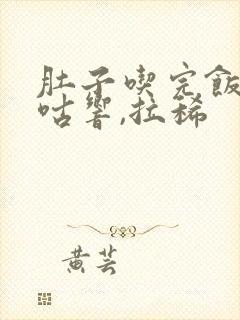 肚子喫完飯
咕響,拉稀
黄芸